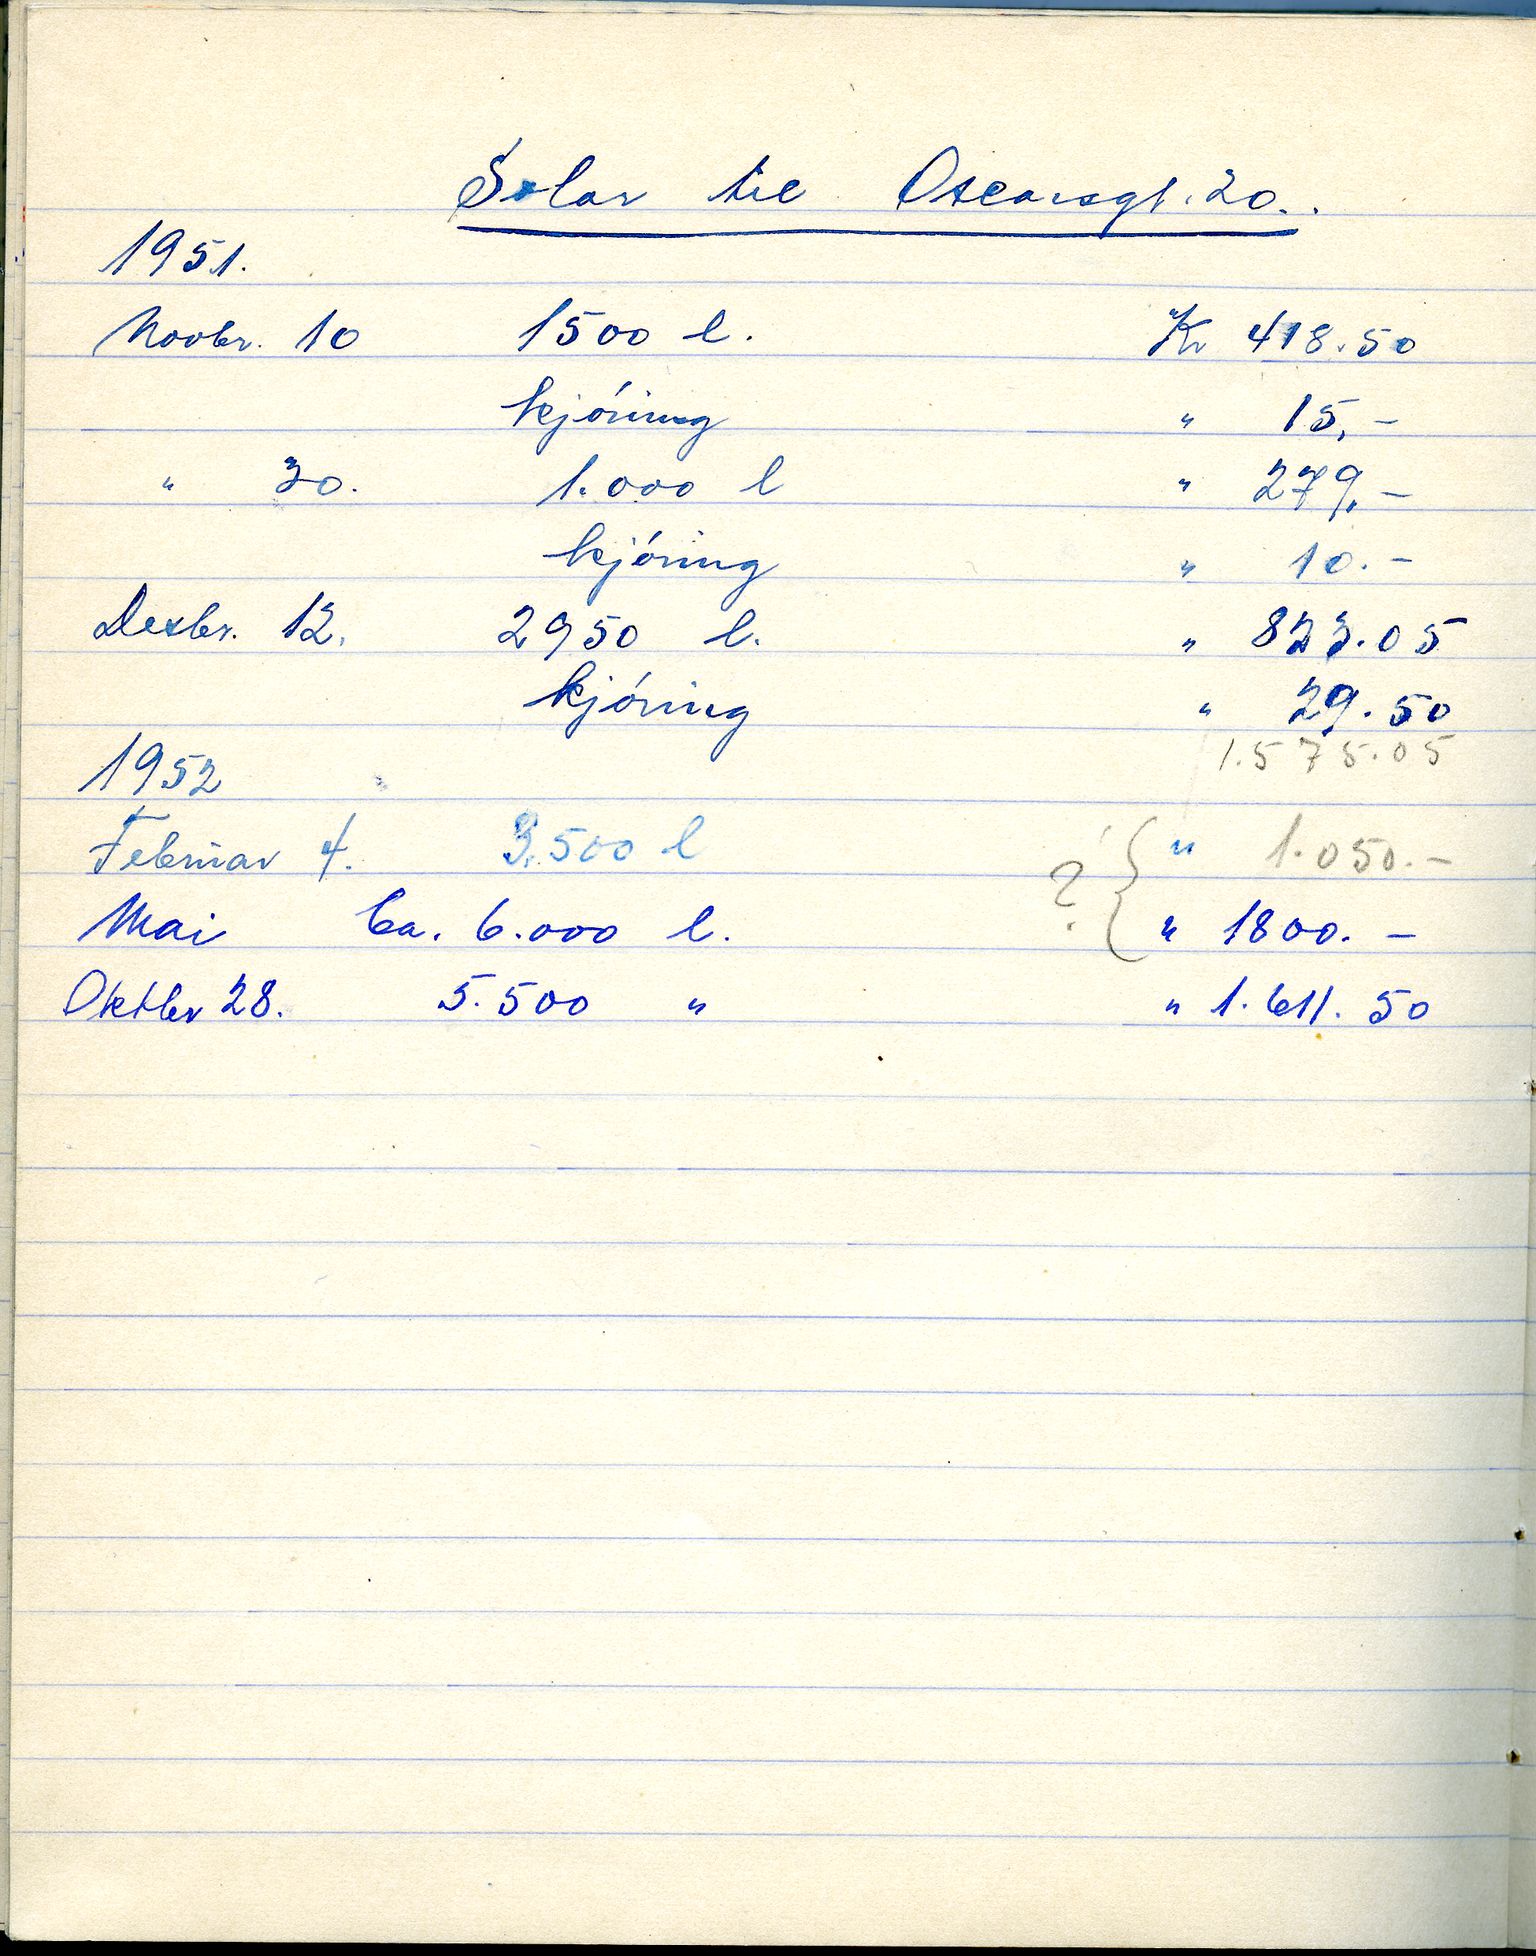 Solar til Oscarsgt. 20..
1951.
Novbr. 10 1500 l. Kr 418.50
kjóring " 15,-
" 30. 1.000 l " 279,-
kjóring " 10.-
Desbr. 12. 2950 l. " 823.05
kjóring " 29.50
1.575.05
1952
Februar 4. 3.500 l ? { " 1.050.-
Mai Ca. 6.000 l. " 1800.-
Oktbr 28. 5.500 " " 1.611.50